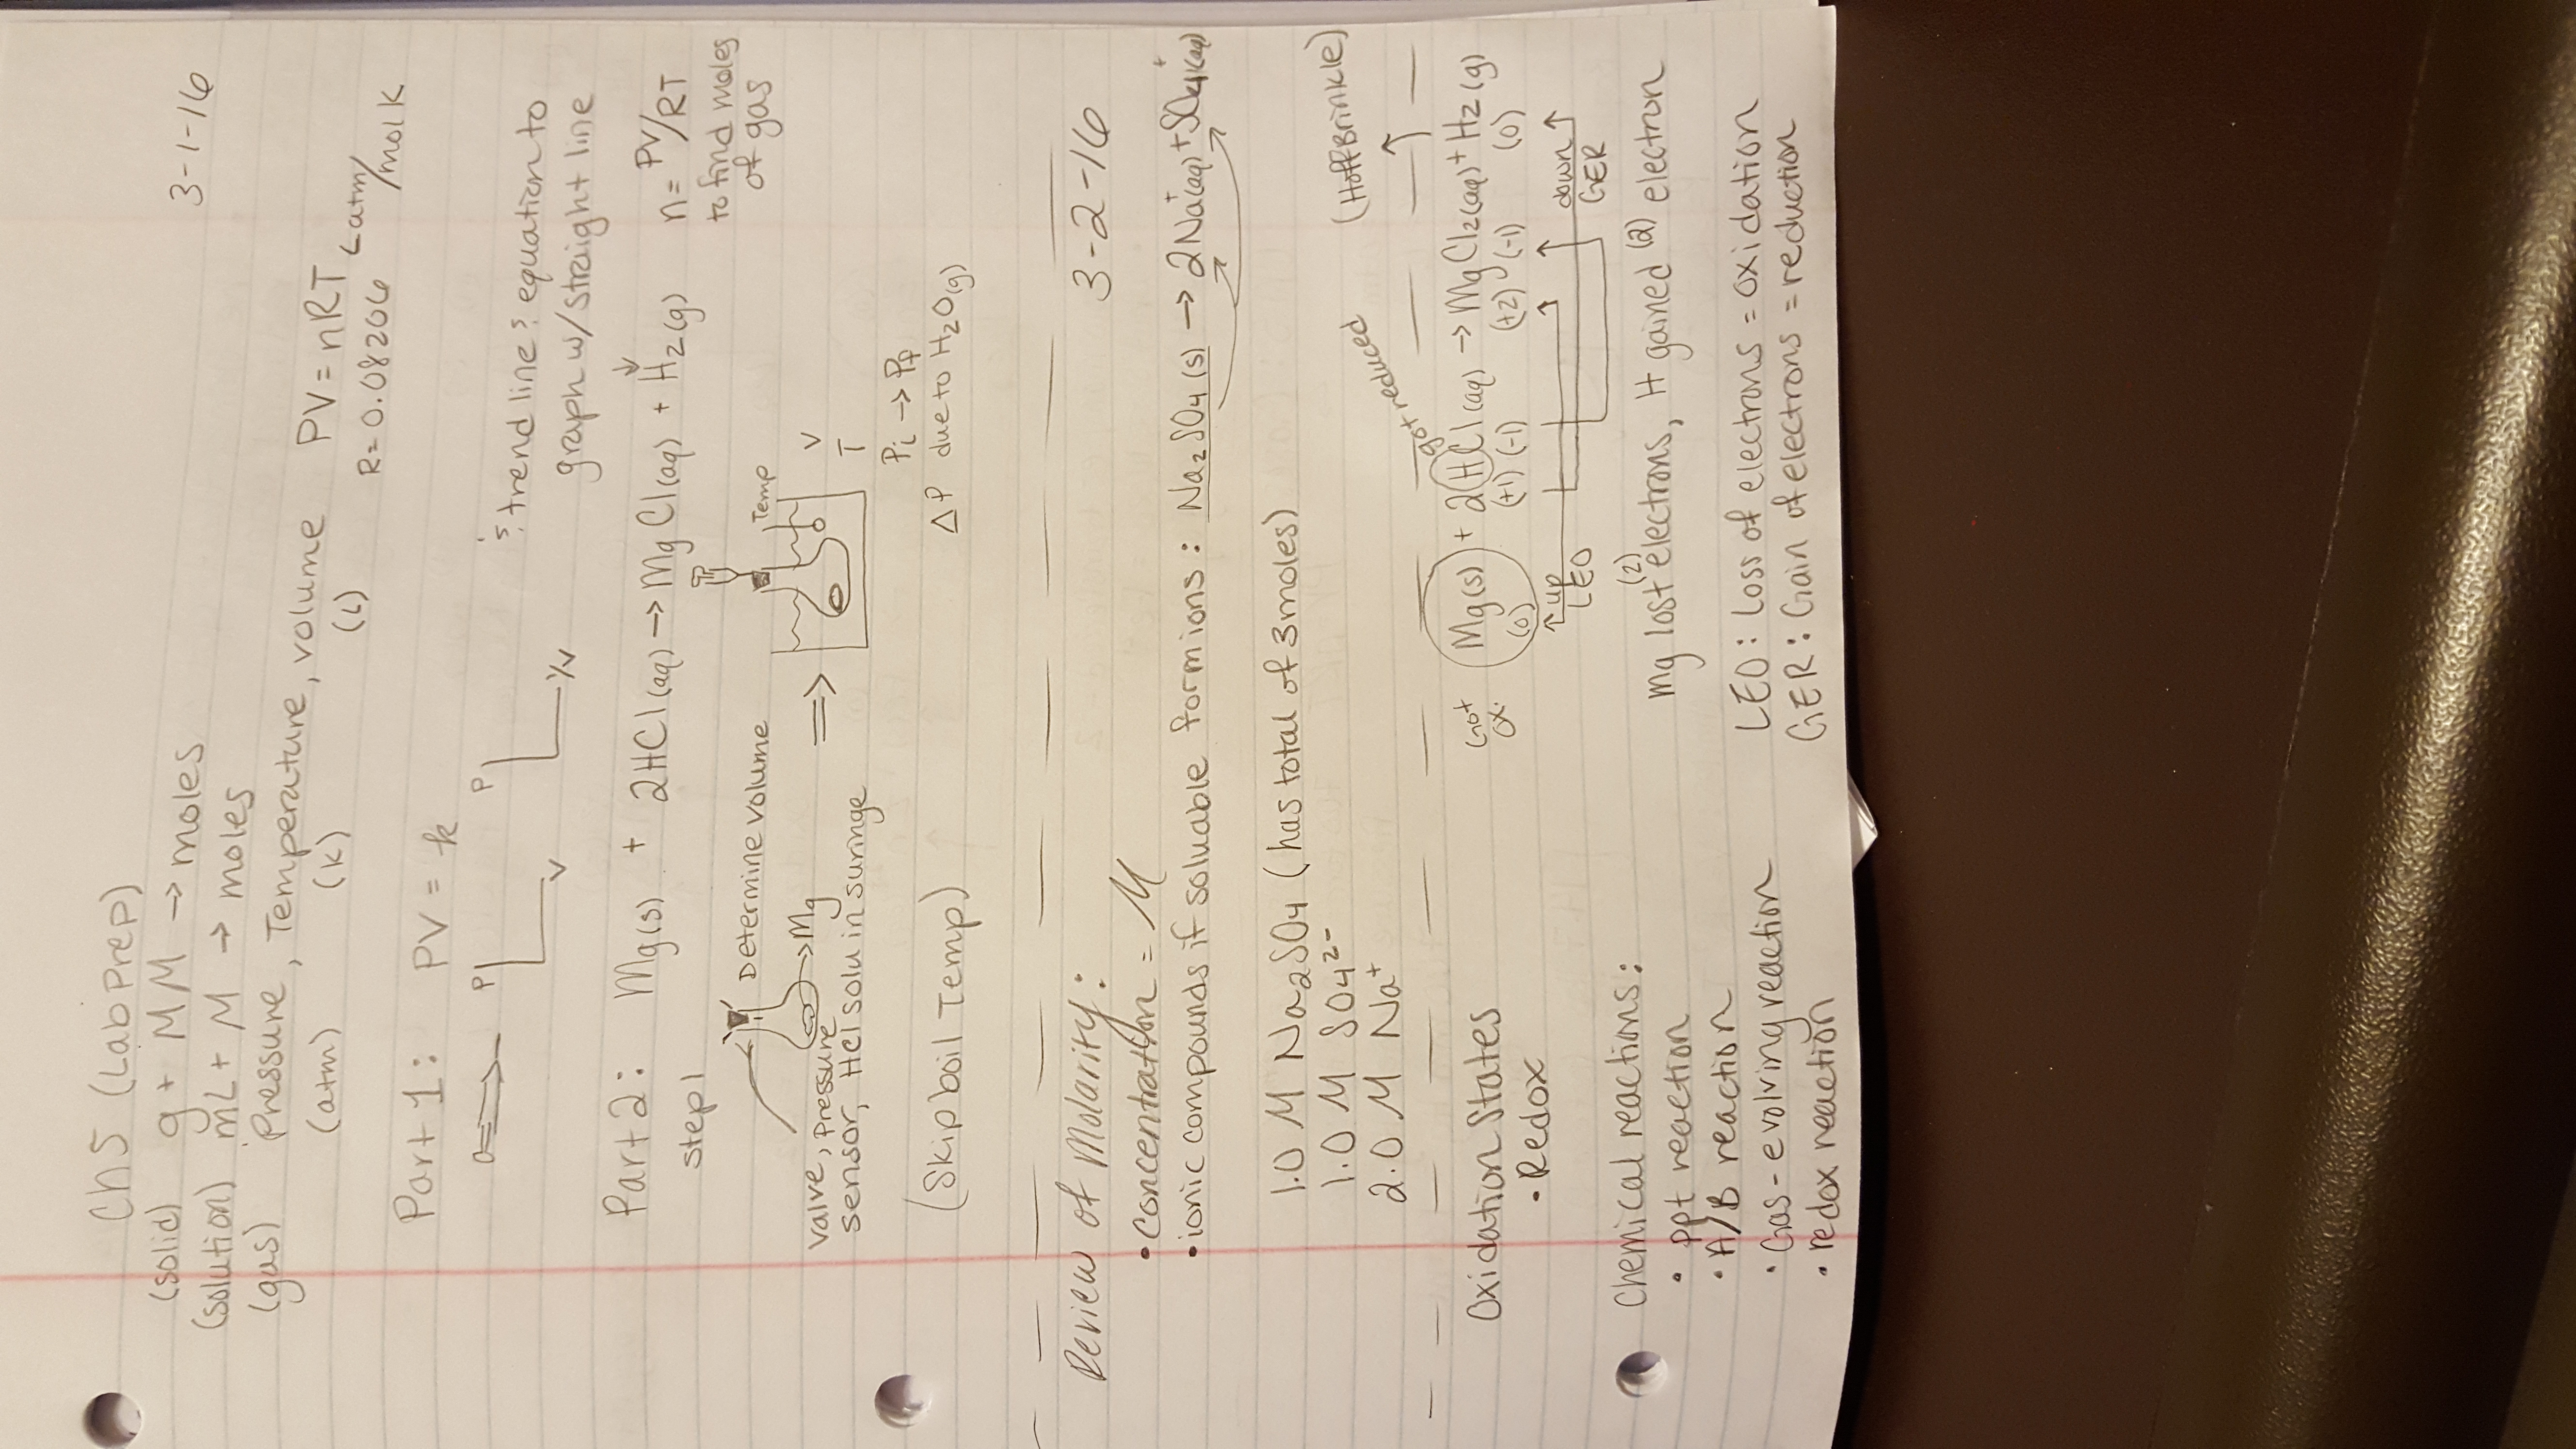 Ch 5 (Lab Prep) 3-1-16
(solid) g + MM → moles
(solution) mL + M → moles
(gas) Pressure, Temperature, volume PV = nRT
(atm) (K) (L) R = 0.08206 L atm/mol K
Part 1: PV = k
P V P 1/V & trend line & equation to
graph w/ straight line
Part 2: Mg(s) + 2HCl(aq) → MgCl(aq) + H2(g) n = PV/RT
to find moles
of gas
step 1
Determine volume
→ Mg
valve, Pressure
sensor, HCl solu in suringe
⇒
Temp
V
T
Pi → Pf
ΔP due to H2O(g)
(Skip boil Temp)
Review of Molarity: 3-2-16
• Concentration = M
• ionic compounds if soluable form ions: Na2SO4(s) → 2Na+(aq) + SO4(aq)
1.0 M Na2SO4 (has total of 3 moles)
1.0 M SO4 2-
2.0 M Na+
(Hoffbrinkle)
got reduced
Oxidation States Mg(s) + 2HCl(aq) → MgCl2(aq) + H2(g)
(0) (+1) (-1) (+2) (-1) (0)
• Redox
got
ox.
up
LEO
down
GER
Mg lost (2) electrons, H gained (2) electron
Chemical reactions:
• ppt reaction
• A/B reaction
• Gas-evolving reaction
• redox reaction
LEO: Loss of electrons = oxidation
GER: Gain of electrons = reduction